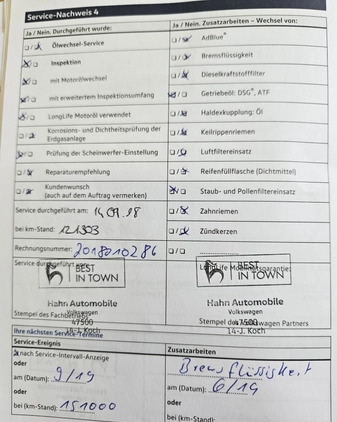 Service-Nachweis 4
Ja / Nein. Durchgeführt wurde:
Ja / Nein. Zusatzarbeiten – Wechsel von:
Ölwechsel-Service
AdBlue®
Inspektion
Bremsflüssigkeit
mit Motorölwechsel
Dieselkraftstofffilter
mit erweitertem Inspektionsumfang
Getriebeöl: DSG®, ATF
LongLife Motoröl verwendet
Haldexkupplung: Öl
Korrosions- und Dichtheitsprüfung der
Erdgasanlage
Keilrippenriemen
Prüfung der Scheinwerfer-Einstellung
Luftfiltereinsatz
Reparaturempfehlung
Reifenfüllflasche (Dichtmittel)
Kundenwunsch
(auch auf dem Auftrag vermerken)
Staub- und Pollenfiltereinsatz
Service durchgeführt am:
Zahnriemen
bei km-Stand: 121303
Zündkerzen
Rechnungsnummer: 2018010286
Service durchgeführt von:
LongLife Mobilitätsgarantie:
BEST
IN TOWN
BEST
IN TOWN
Hahn Automobile
Hahn Automobile
Volkswagen
Volkswagen
Stempel des Fachbetriebs
47500
Stempel des Volkswagen Partners
47500
14-J. Koch
14-J. Koch
Ihre nächsten Service-Termine
Service-Ereignis
Zusatzarbeiten
nach Service-Intervall-Anzeige
Bremsflüssigkeit
oder
am (Datum): 9/19
am (Datum): 6/19
oder
oder
bei (km-Stand): 151000
bei (km-Stand):